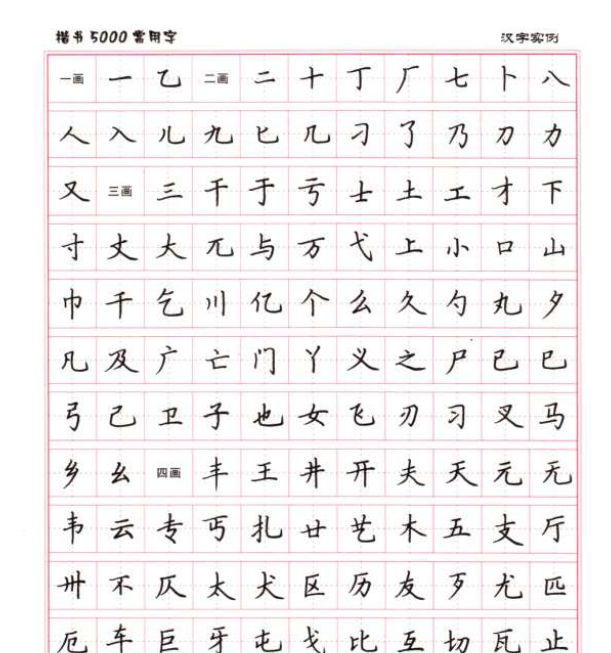 楷书5000常用字 汉字实例
一画 一 乙 二画 二 十 丁 厂 七 卜 八
人 入 儿 九 匕 几 刁 了 乃 刀 力
又 三画 三 干 于 亏 士 土 工 才 下
寸 丈 大 兀 与 万 弋 上 小 口 山
巾 千 乞 川 亿 个 么 久 勺 丸 夕
凡 及 广 亡 门 丫 义 之 尸 已 巳
弓 己 卫 子 也 女 飞 刃 习 叉 马
乡 幺 四画 丰 王 井 开 夫 天 元 无
韦 云 专 丐 扎 廿 艺 木 五 支 厅
卅 不 仄 太 犬 区 历 友 歹 尤 匹
厄 车 巨 牙 屯 戈 比 互 切 瓦 止